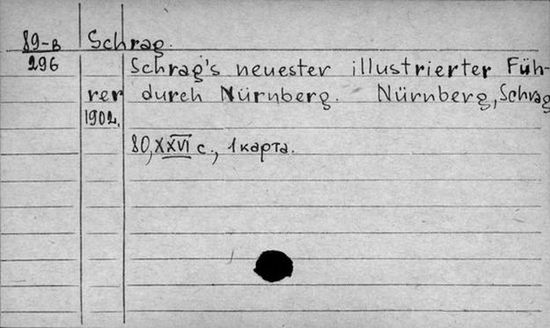 89-в Schrag.
296 Schrag's neuester illustrierter Füh-
rer durch Nürnberg. Nürnberg, Schrag
1902.
80, XXVI с., 1 карта.